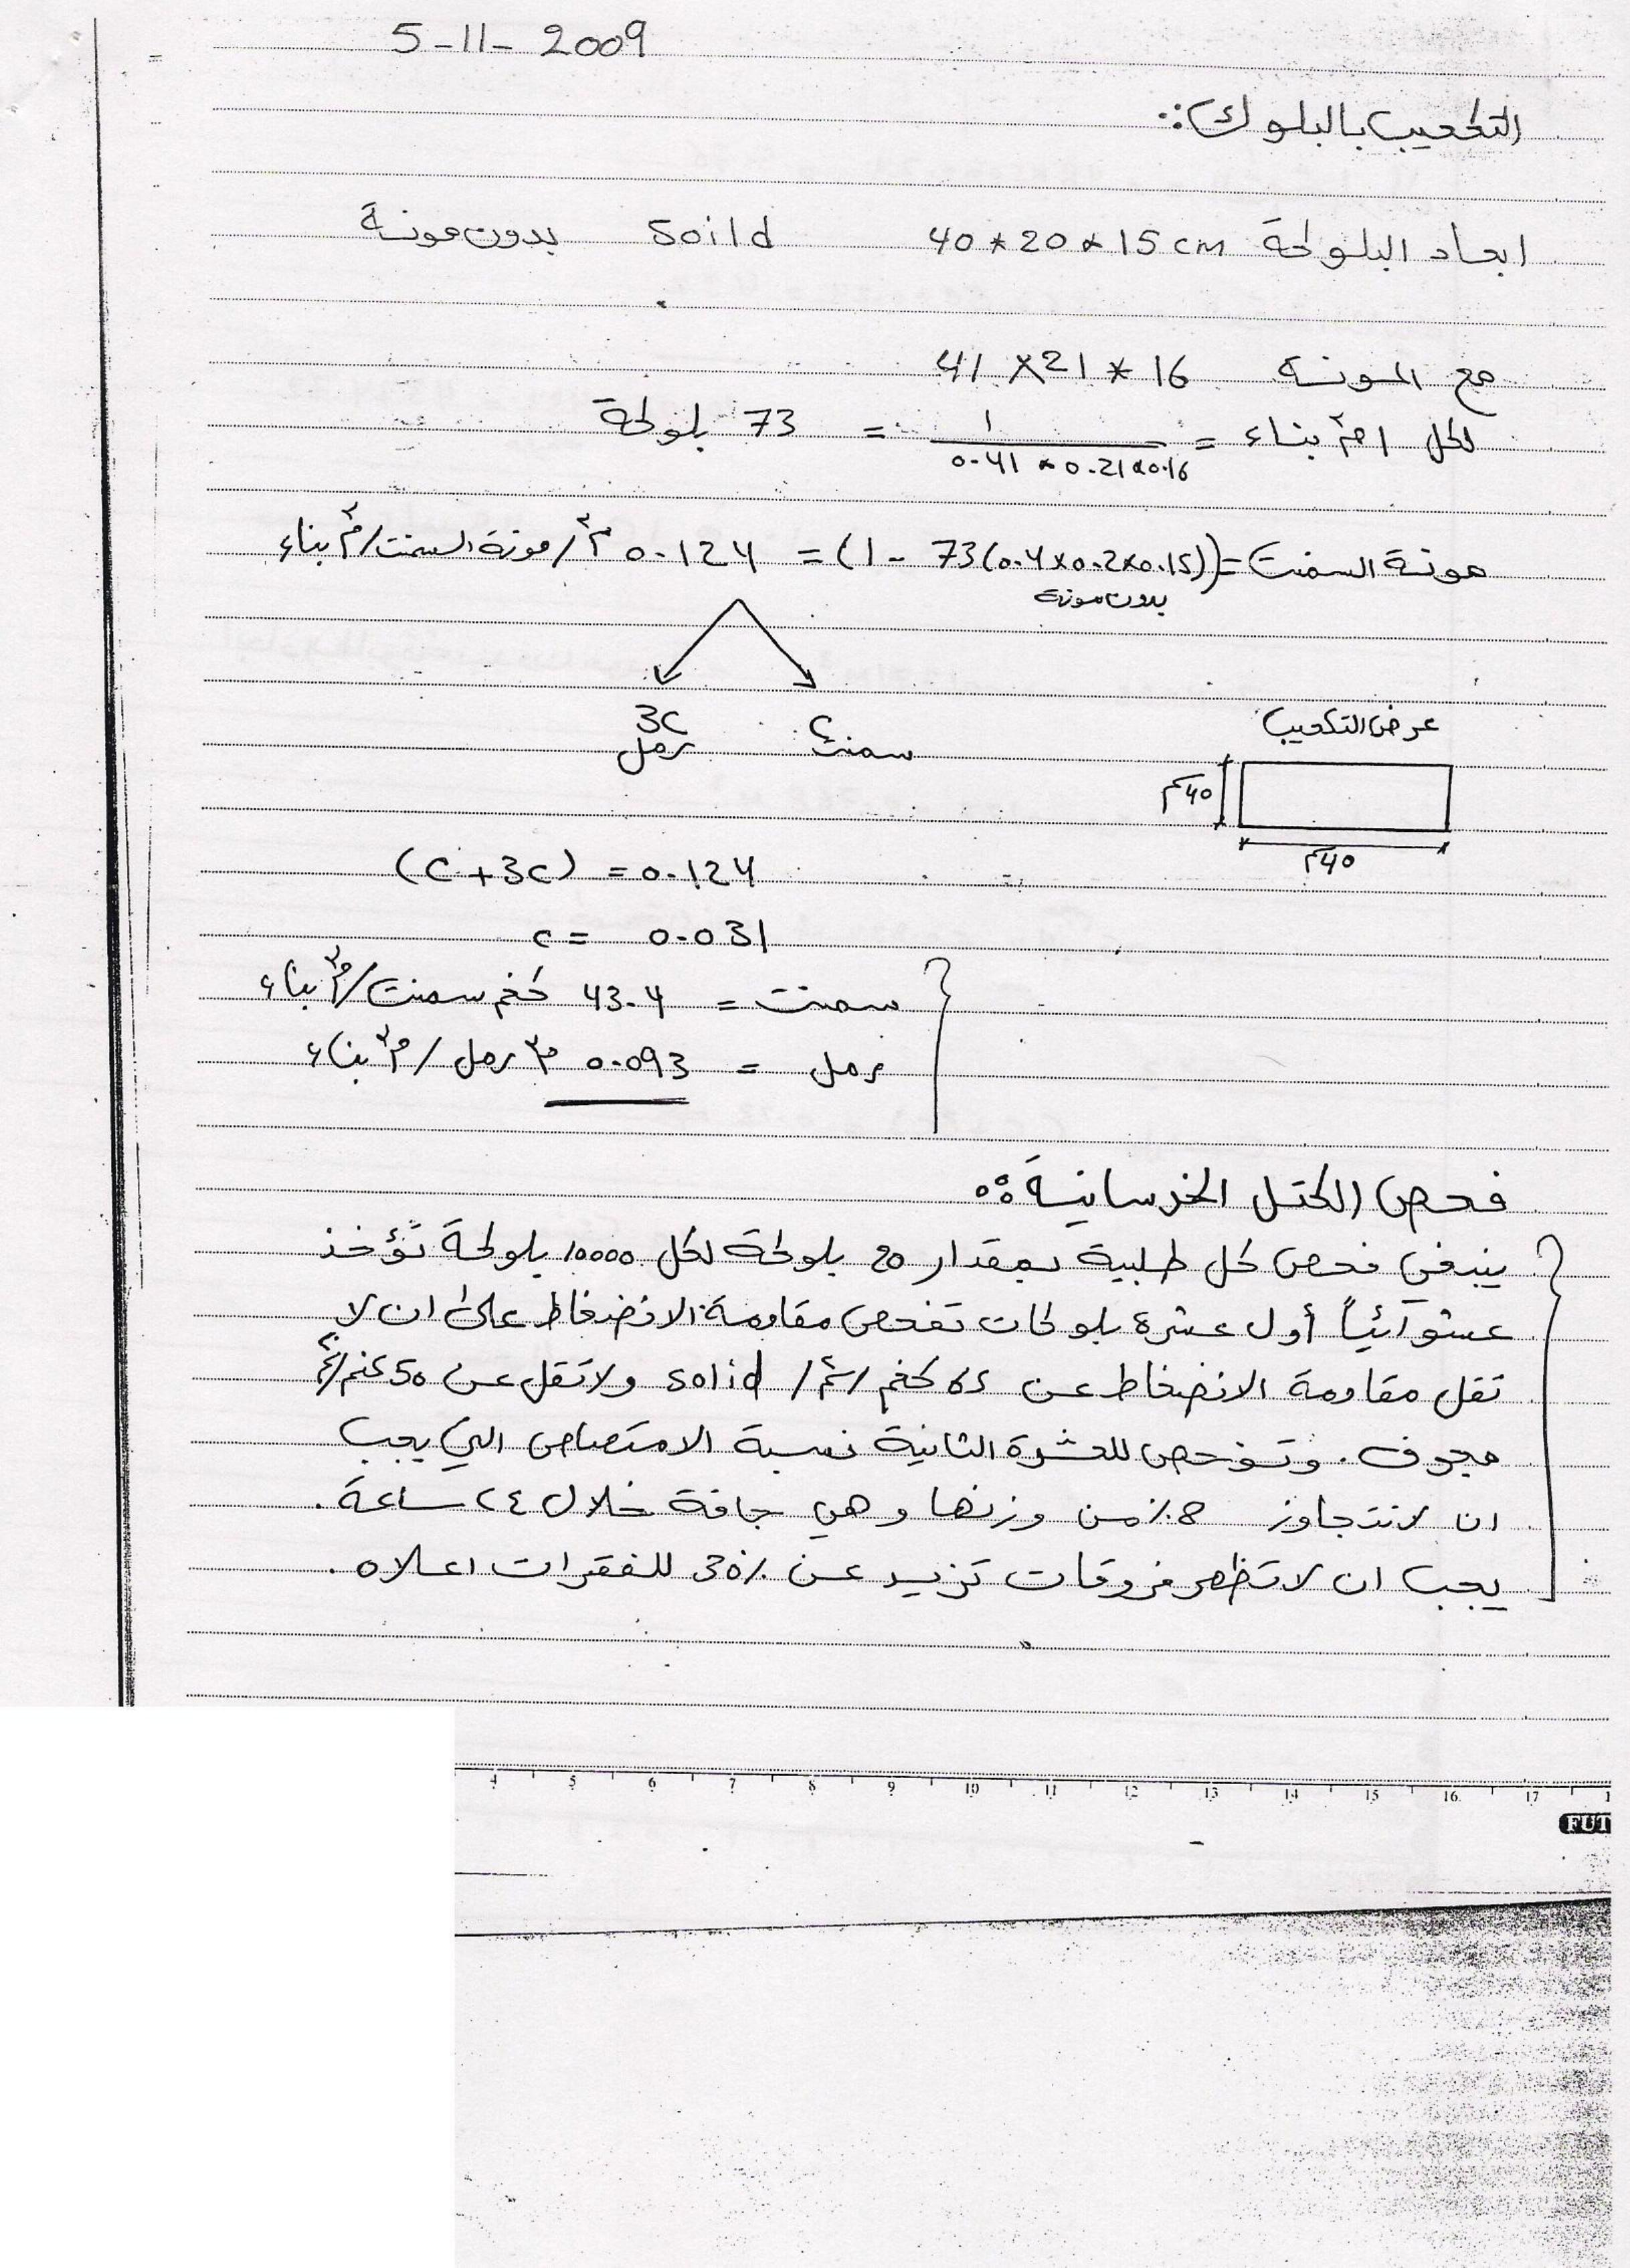 5-11-2009
التكعيب بالبلوك:
ابعاد البلوكة 40*20*15cm Soild بدون مونة
مع المونة 41×21*16
لكل 1م٣ بناء = 1 / 0.41*0.21*0.16 = 73 بلوكة
مونة السمنت = (1- 73(0.4×0.2×0.15)) = 0.124 م٣/مونة السمنت/م٣ بناء
بدون مونة
3C C
رمل سمنت
عرض التكعيب
40سم
40سم
(C+3C) = 0.124
c = 0.031
سمنت = 43.4 كغم سمنت/م٣ بناء
رمل = 0.093 م٣ رمل/م٣ بناء
فحص الكتل الخرسانية:
ينبغي فحص كل طلبية بمقدار 20 بلوكة لكل 10000 بلوكة تؤخذ
عشوائياً أول عشرة بلوكات تفحص مقاومة الانضغاط على ان لا
تقل مقاومة الانضغاط عن 65 كغم/سم٢/ solid ولا تقل عن 50 كغم/سم٢
مجوف. وتفحص للعشرة الثانية نسبة الامتصاص التي يجب
ان لا تتجاوز 8٪ من وزنها وهي جافة خلال ٢٤ ساعة.
يجب ان لا تظهر فروقات تزيد عن 30٪ للفقرات اعلاه.
4 5 6 7 8 9 10 11 12 13 14 15 16 17 1
FUT